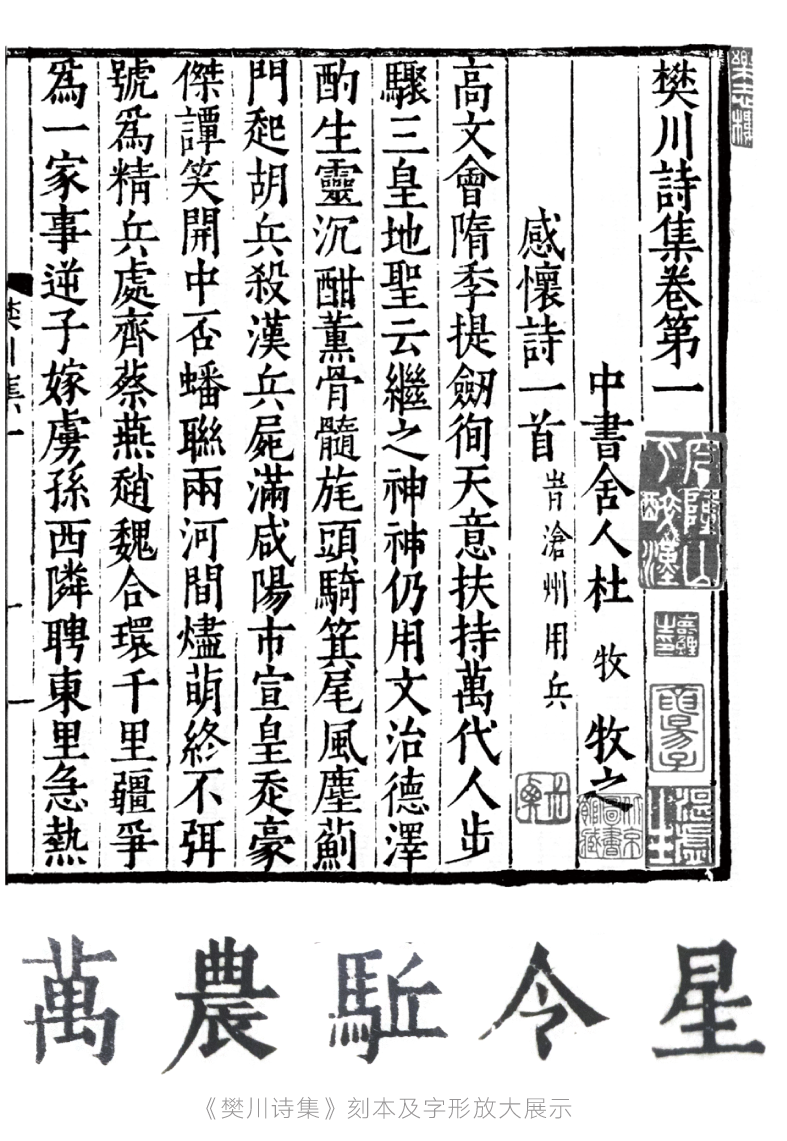 樊川詩集卷第一
中書舍人杜 牧 牧之
感懷詩一首 旹滄州用兵
高文會隋季提劒徇天意扶持萬代人步
驟三皇地聖云繼之神神仍用文治德澤
酌生靈沉酣薰骨髓旄頭騎箕尾風塵薊
門起胡兵殺漢兵屍滿咸陽市宣皇走豪
傑譚笑開中否蟠聯兩河間燼萌終不弭
號爲精兵處齊蔡燕趙魏合環千里疆爭
爲一家事逆子嫁虜孫西隣聘東里急熱
樊川集一
萬農駈令星
《樊川诗集》刻本及字形放大展示